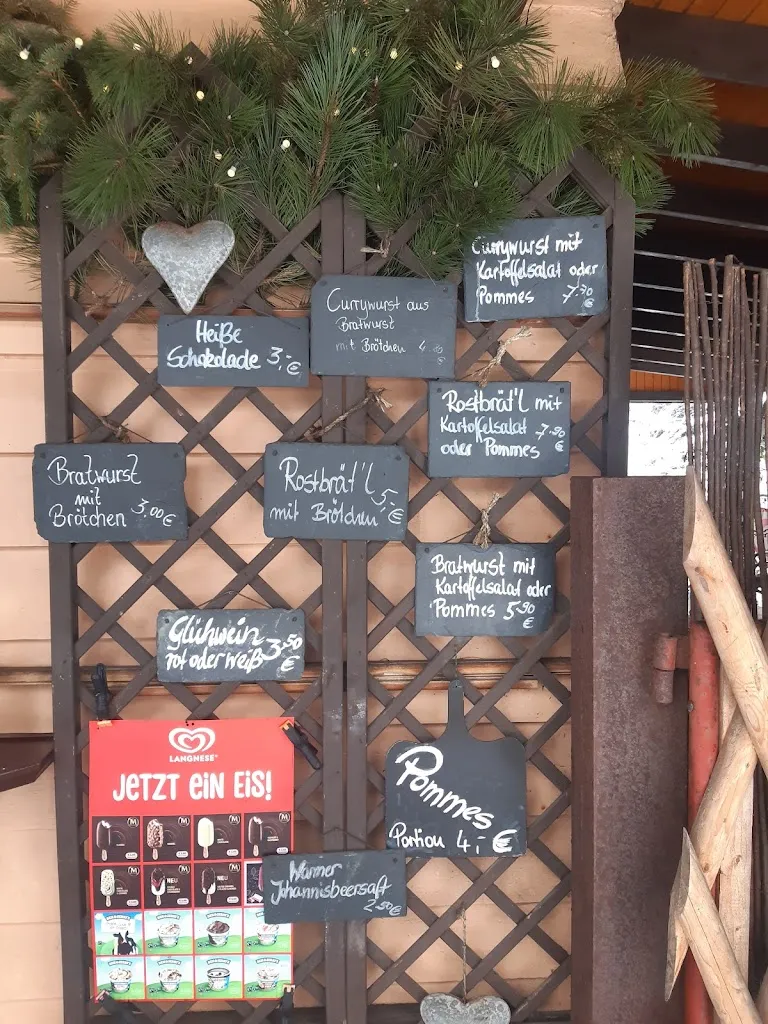 Currywurst mit
Kartoffelsalat oder
Pommes 7,70 €
Heiße
Schokolade 3,- €
Currywurst aus
Bratwurst
mit Brötchen 4,80 €
Rostbrät'l mit
Kartoffelsalat 7,90
oder Pommes €
Bratwurst
mit
Brötchen 3,00 €
Rostbrät'l 5,-
mit Brötchen €
Bratwurst mit
Kartoffelsalad oder
Pommes 5,90
€
Glühwein
rot oder weiß 3,50
€
LANGNESE
JETZT EIN EIS!
NEU
NEU
Pommes
Portion 4,- €
Warmer
Johannisbeersaft
2,50 €